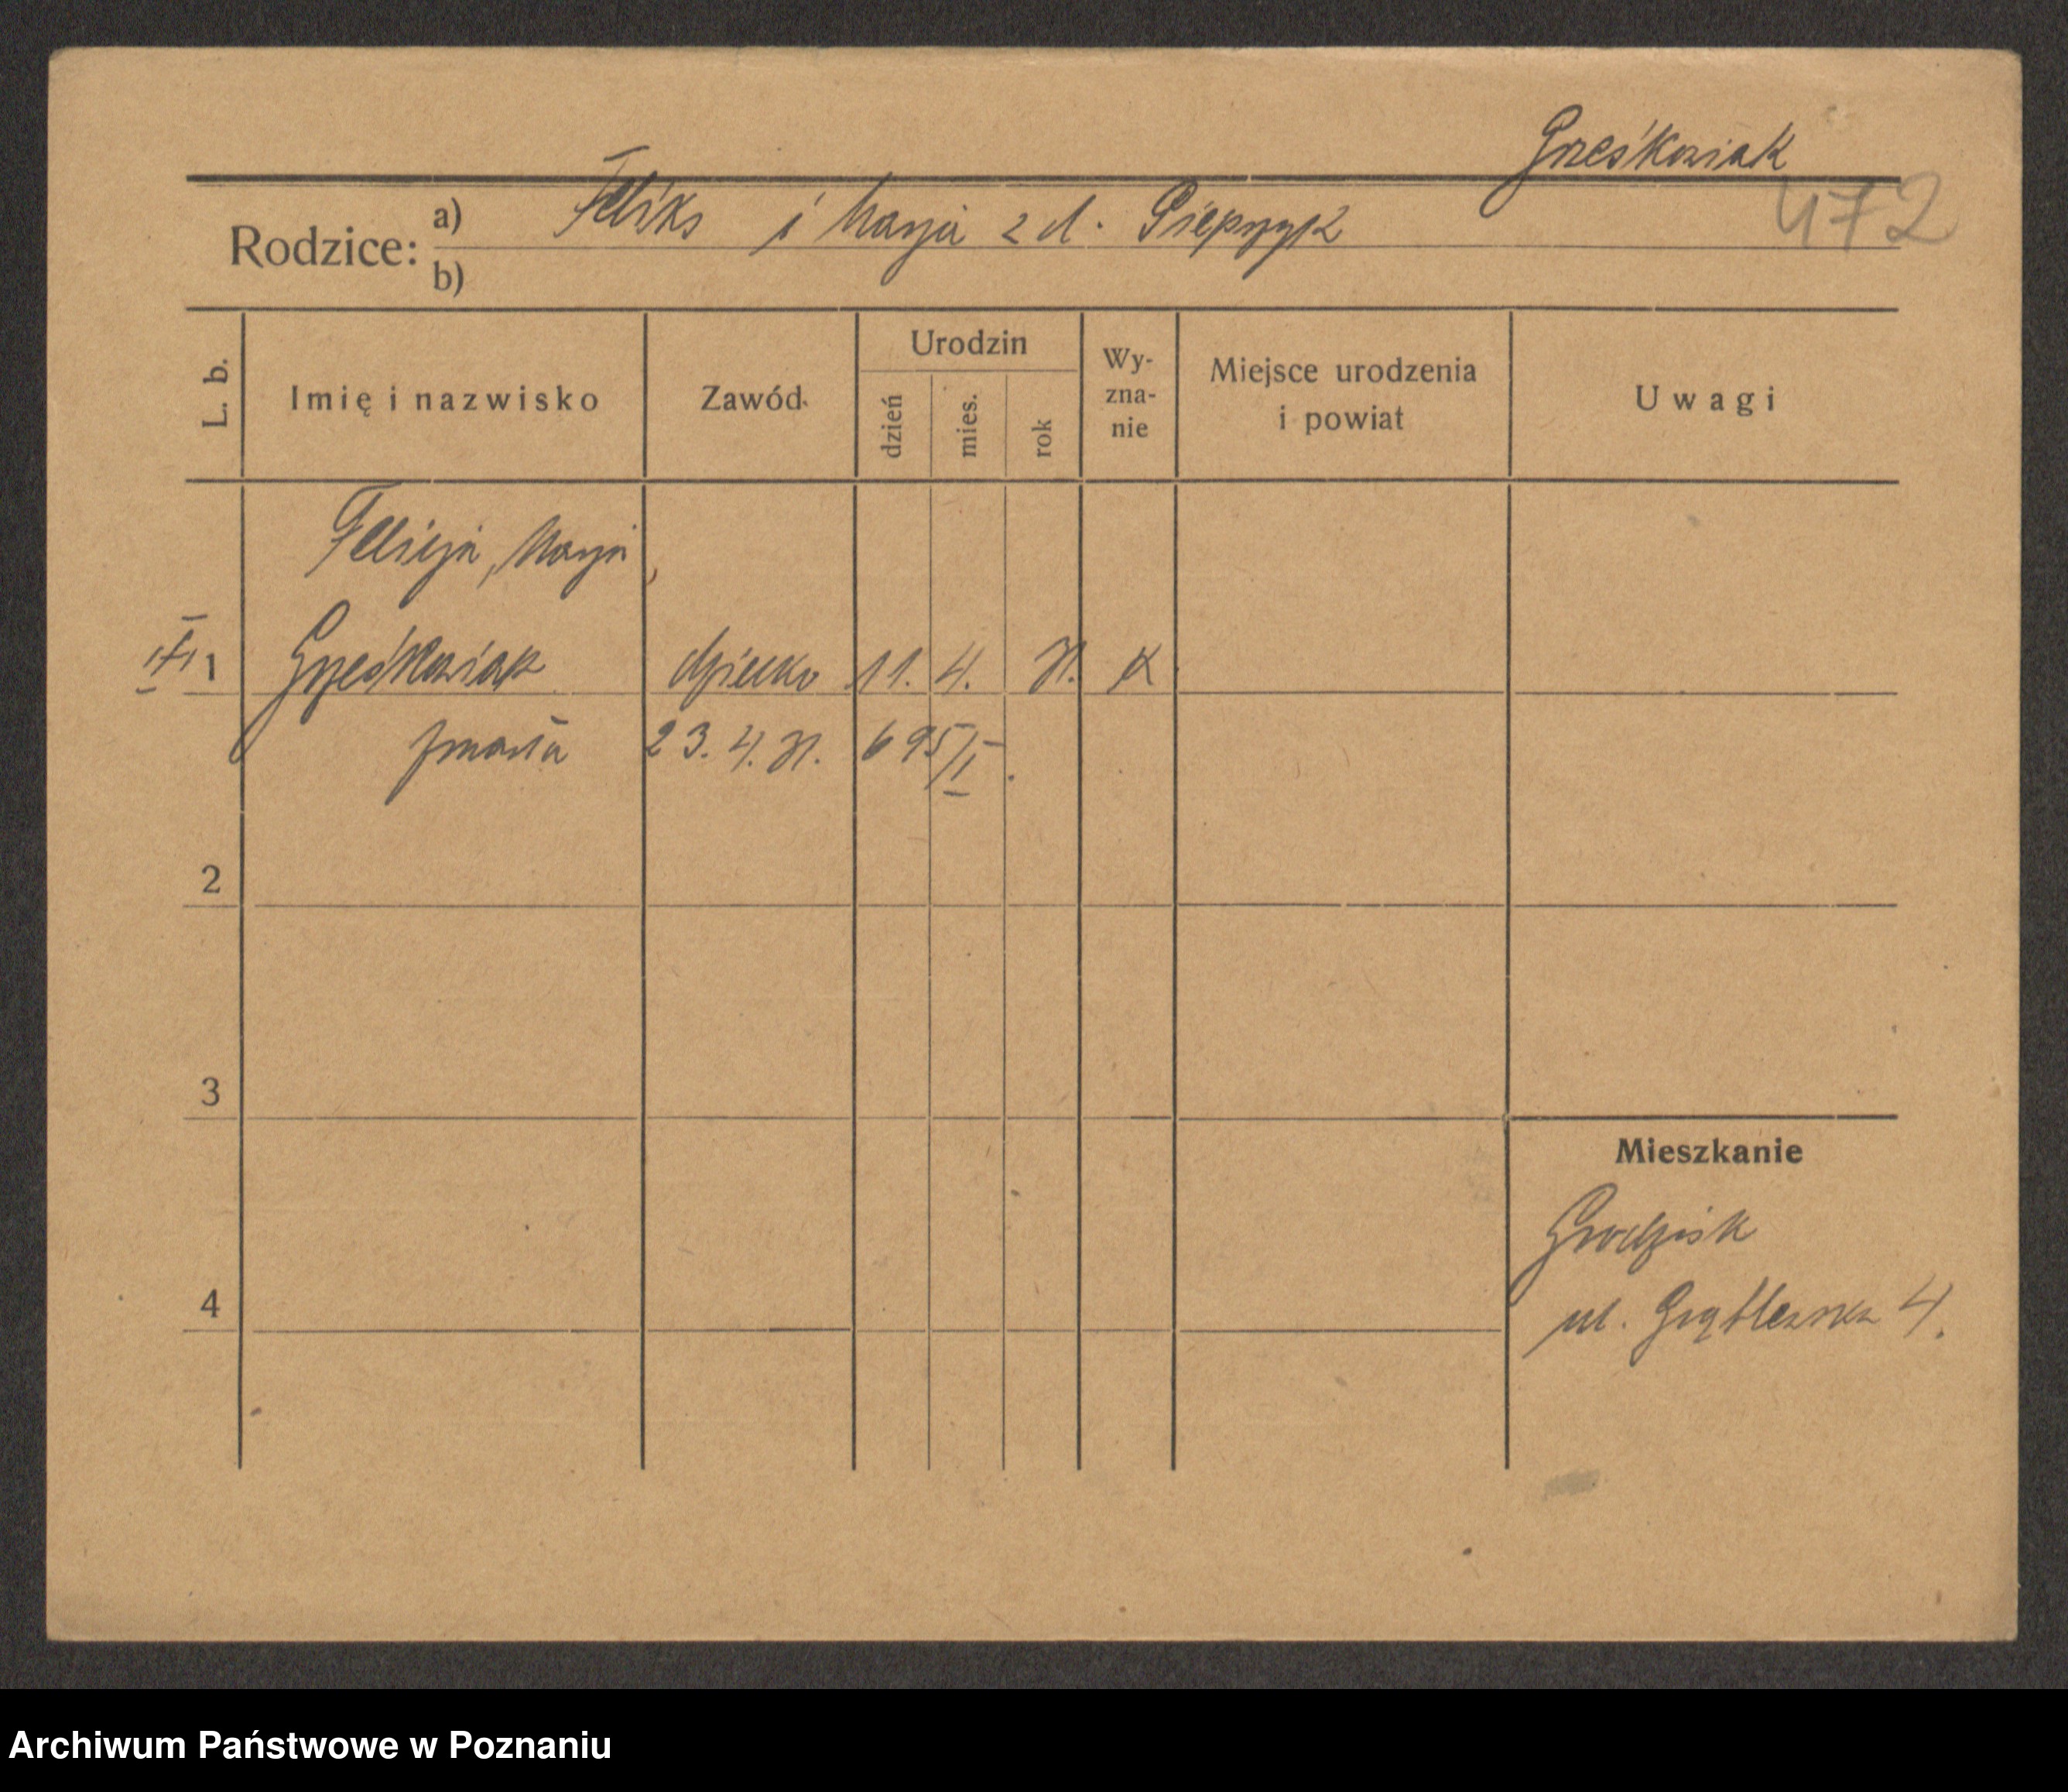 Grześkowiak
472
Rodzice: a) Feliks i Marja z d. Pieprzyk
b)
L. b. Imię i nazwisko Zawód Urodzin dzień mies. rok Wy-zna-nie Miejsce urodzenia i powiat Uwagi
Felicja, Marja,
1 Grześkowiak dziecko 11. 4. 31. k
zmarła 23. 4. 31. 695/I.
2
3
Mieszkanie
Grodzisk
4
ul. Grąblewska 4.
Archiwum Państwowe w Poznaniu